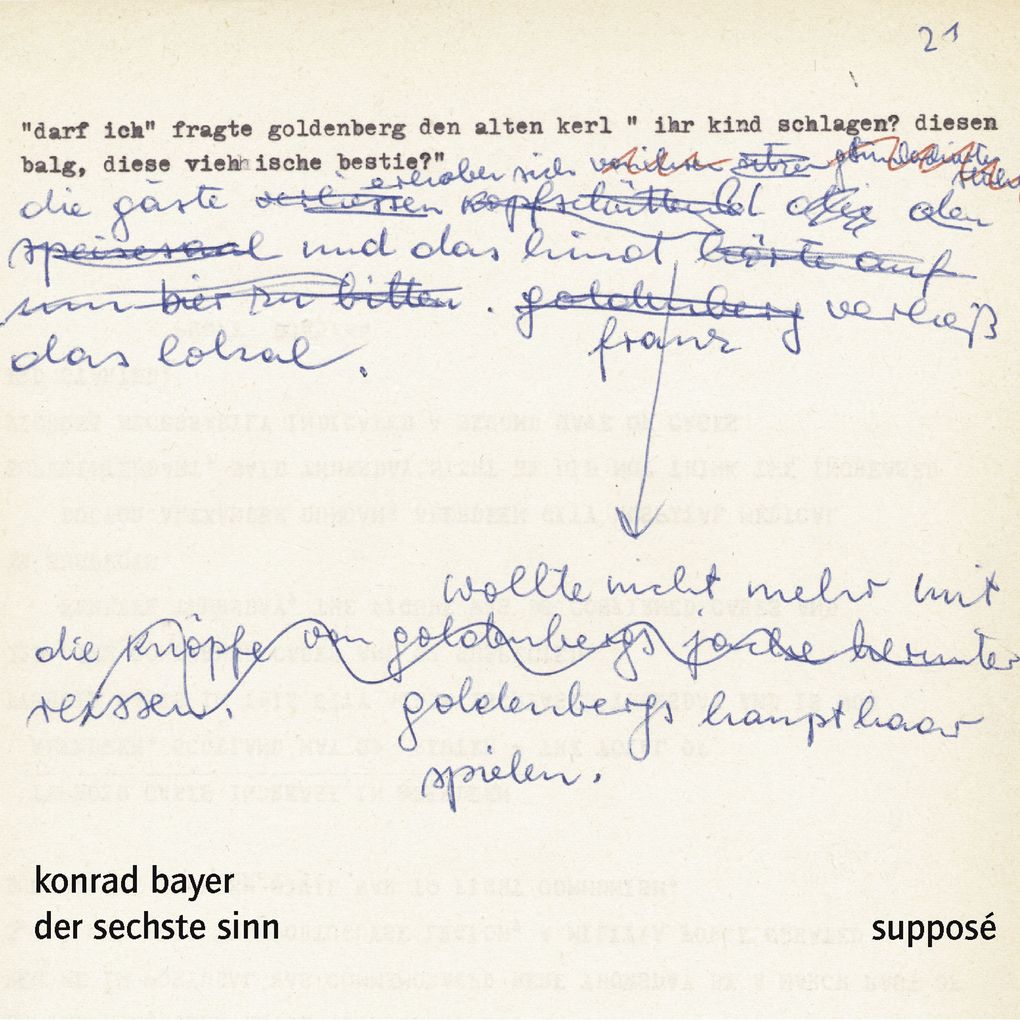 21
"darf ich" fragte goldenberg den alten kerl " ihr kind schlagen? diesen
balg, diese viehische bestie?"
erhoben sich von ihren sitzen
die gäste verliessen kopfschüttelnd den
speisesaal und das kind hörte auf
um bier zu bitten. goldenberg verließ
das lokal. franz
wollte nicht mehr mit
die knöpfe von goldenbergs jacke herunter
reissen. goldenbergs haupthaar
spielen.
konrad bayer
der sechste sinn
supposé